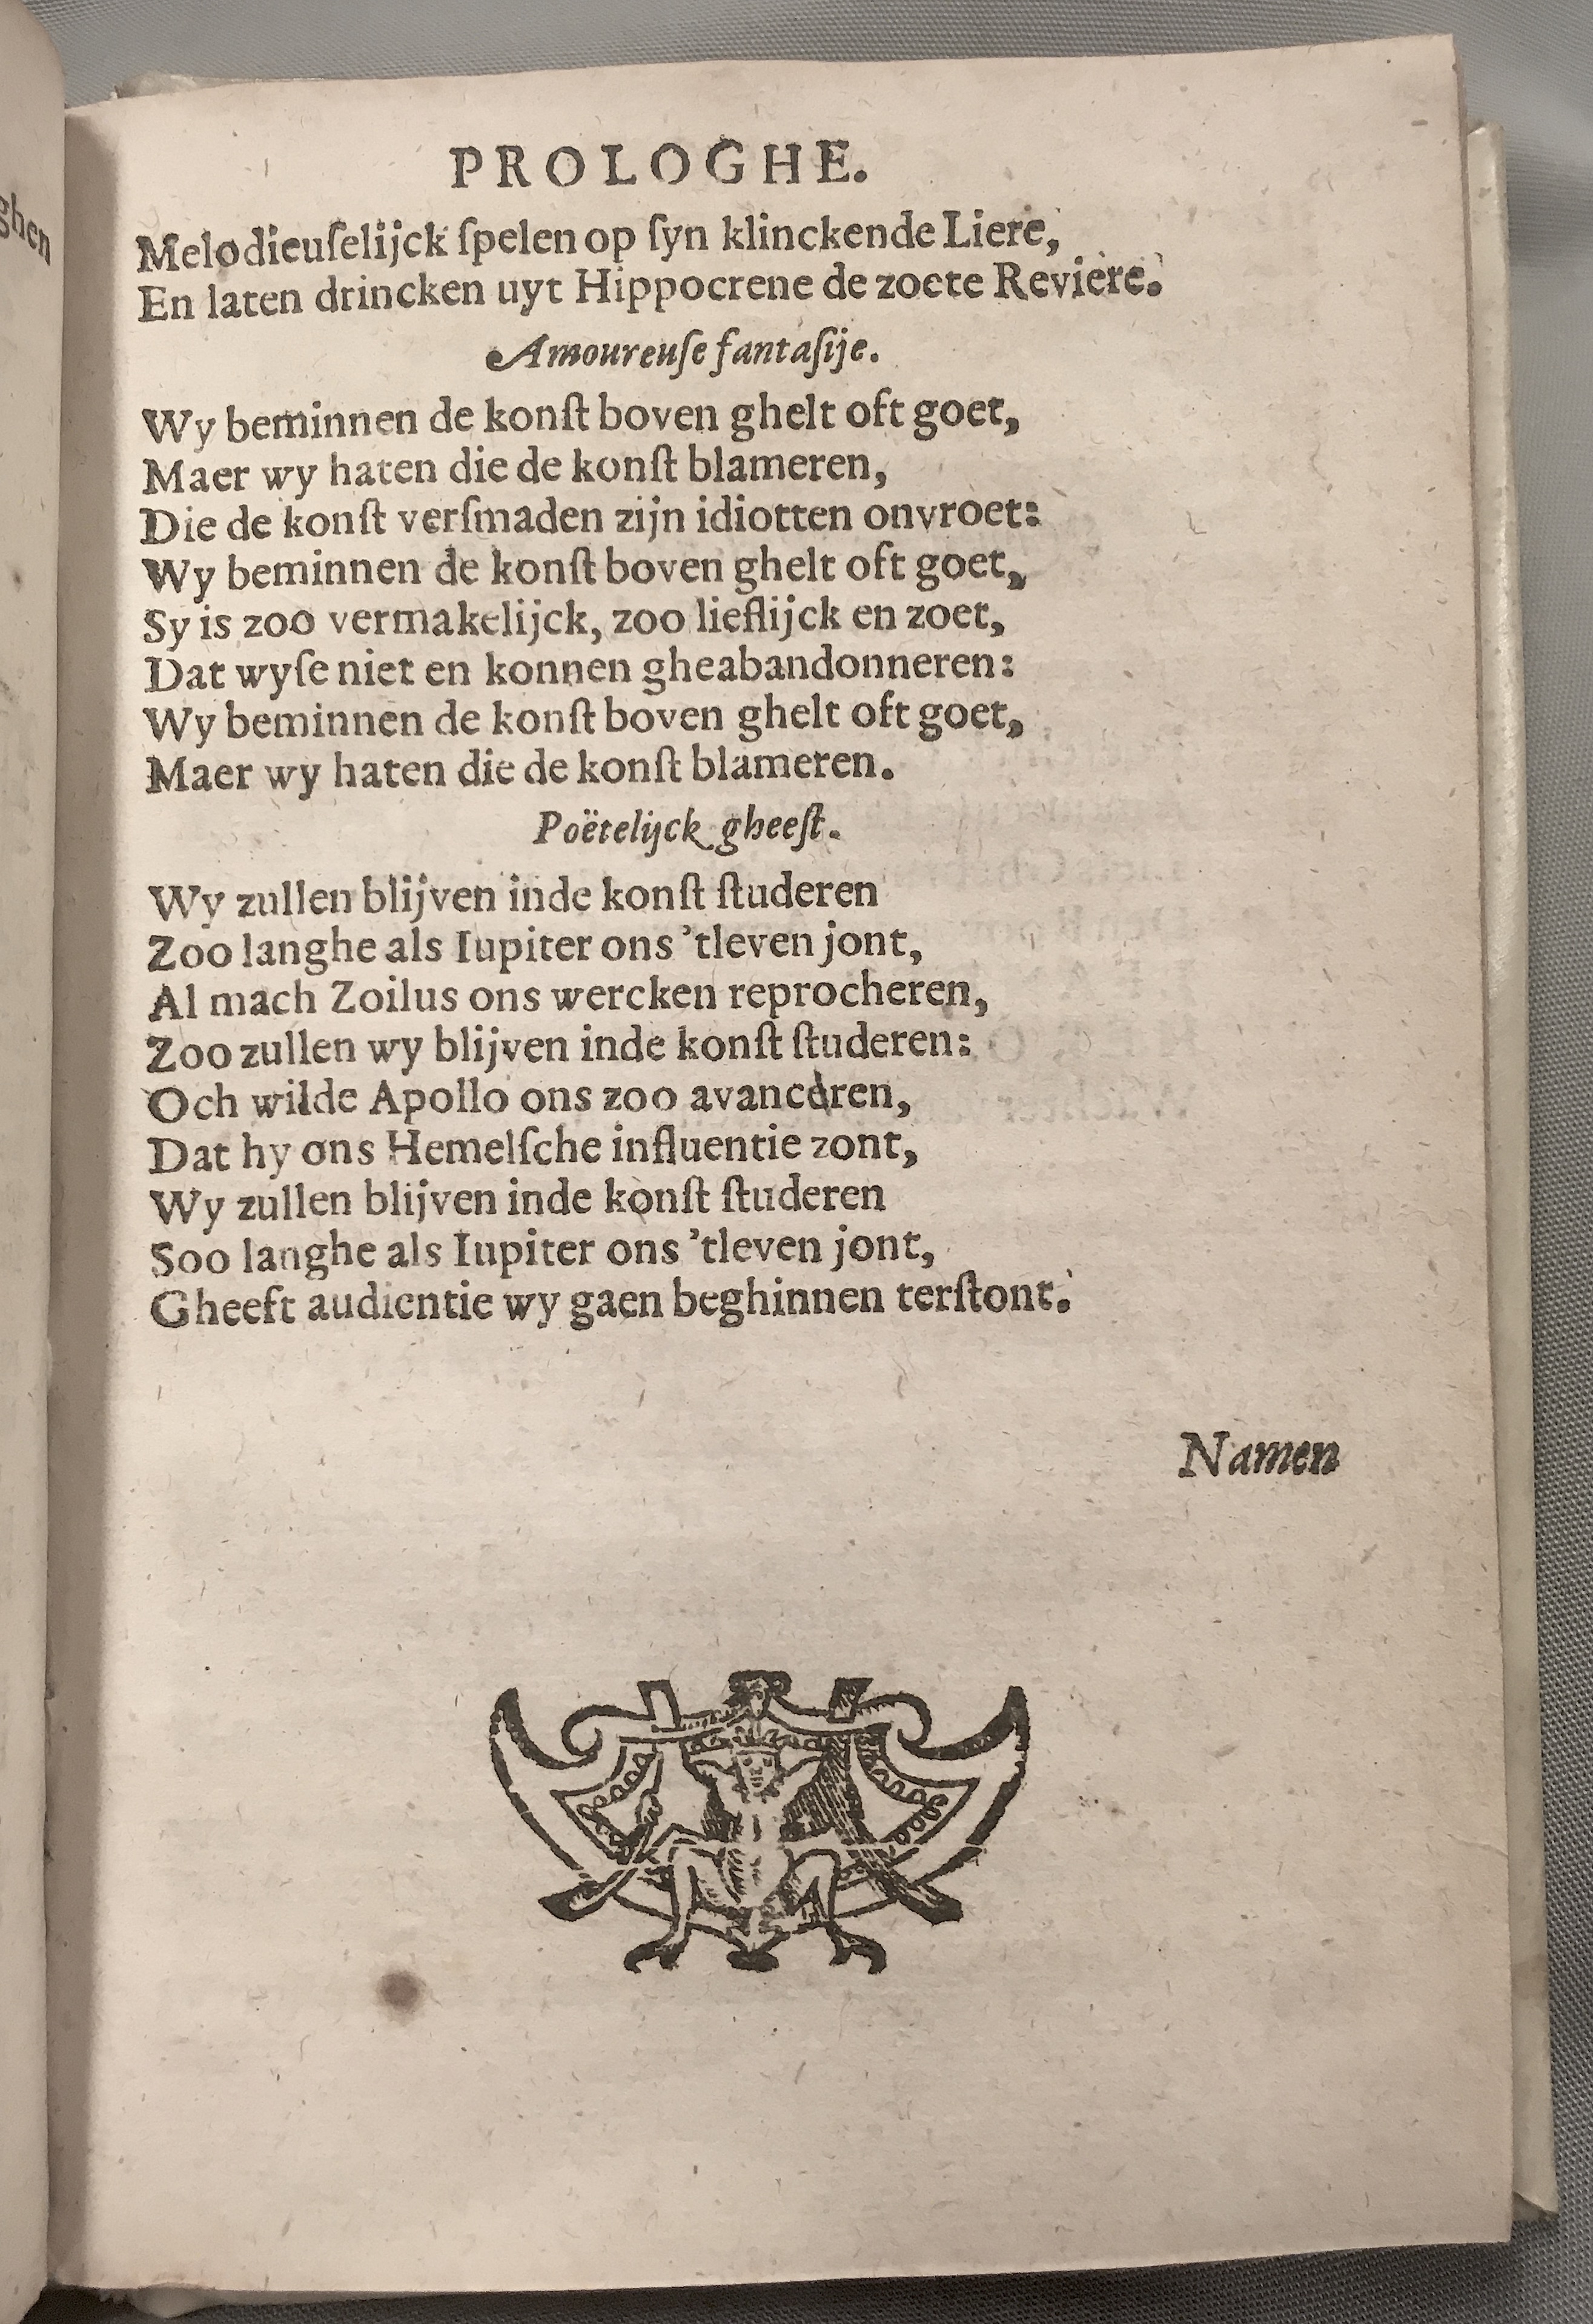 ghen
PROLOGHE.
Melodieuſelijck ſpelen op ſyn klinckende Liere,
En laten drincken uyt Hippocrene de zoete Reviere.
Amoureuſe fantaſije.
Wy beminnen de konſt boven ghelt oft goet,
Maer wy haten die de konſt blameren,
Die de konſt verſmaden zijn idiotten onvroet:
Wy beminnen de konſt boven ghelt oft goet,
Sy is zoo vermakelijck, zoo lieflijck en zoet,
Dat wyſe niet en konnen gheabandonneren:
Wy beminnen de konſt boven ghelt oft goet,
Maer wy haten die de konſt blameren.
Poëtelijck gheeſt.
Wy zullen blijven inde konſt ſtuderen
Zoo langhe als Iupiter ons 'tleven jont,
Al mach Zoilus ons wercken reprocheren,
Zoo zullen wy blijven inde konſt ſtuderen:
Och wilde Apollo ons zoo avanceren,
Dat hy ons Hemelſche influentie zont,
Wy zullen blijven inde konſt ſtuderen
Soo langhe als Iupiter ons 'tleven jont,
Gheeft audientie wy gaen beghinnen terſtont.
Namen